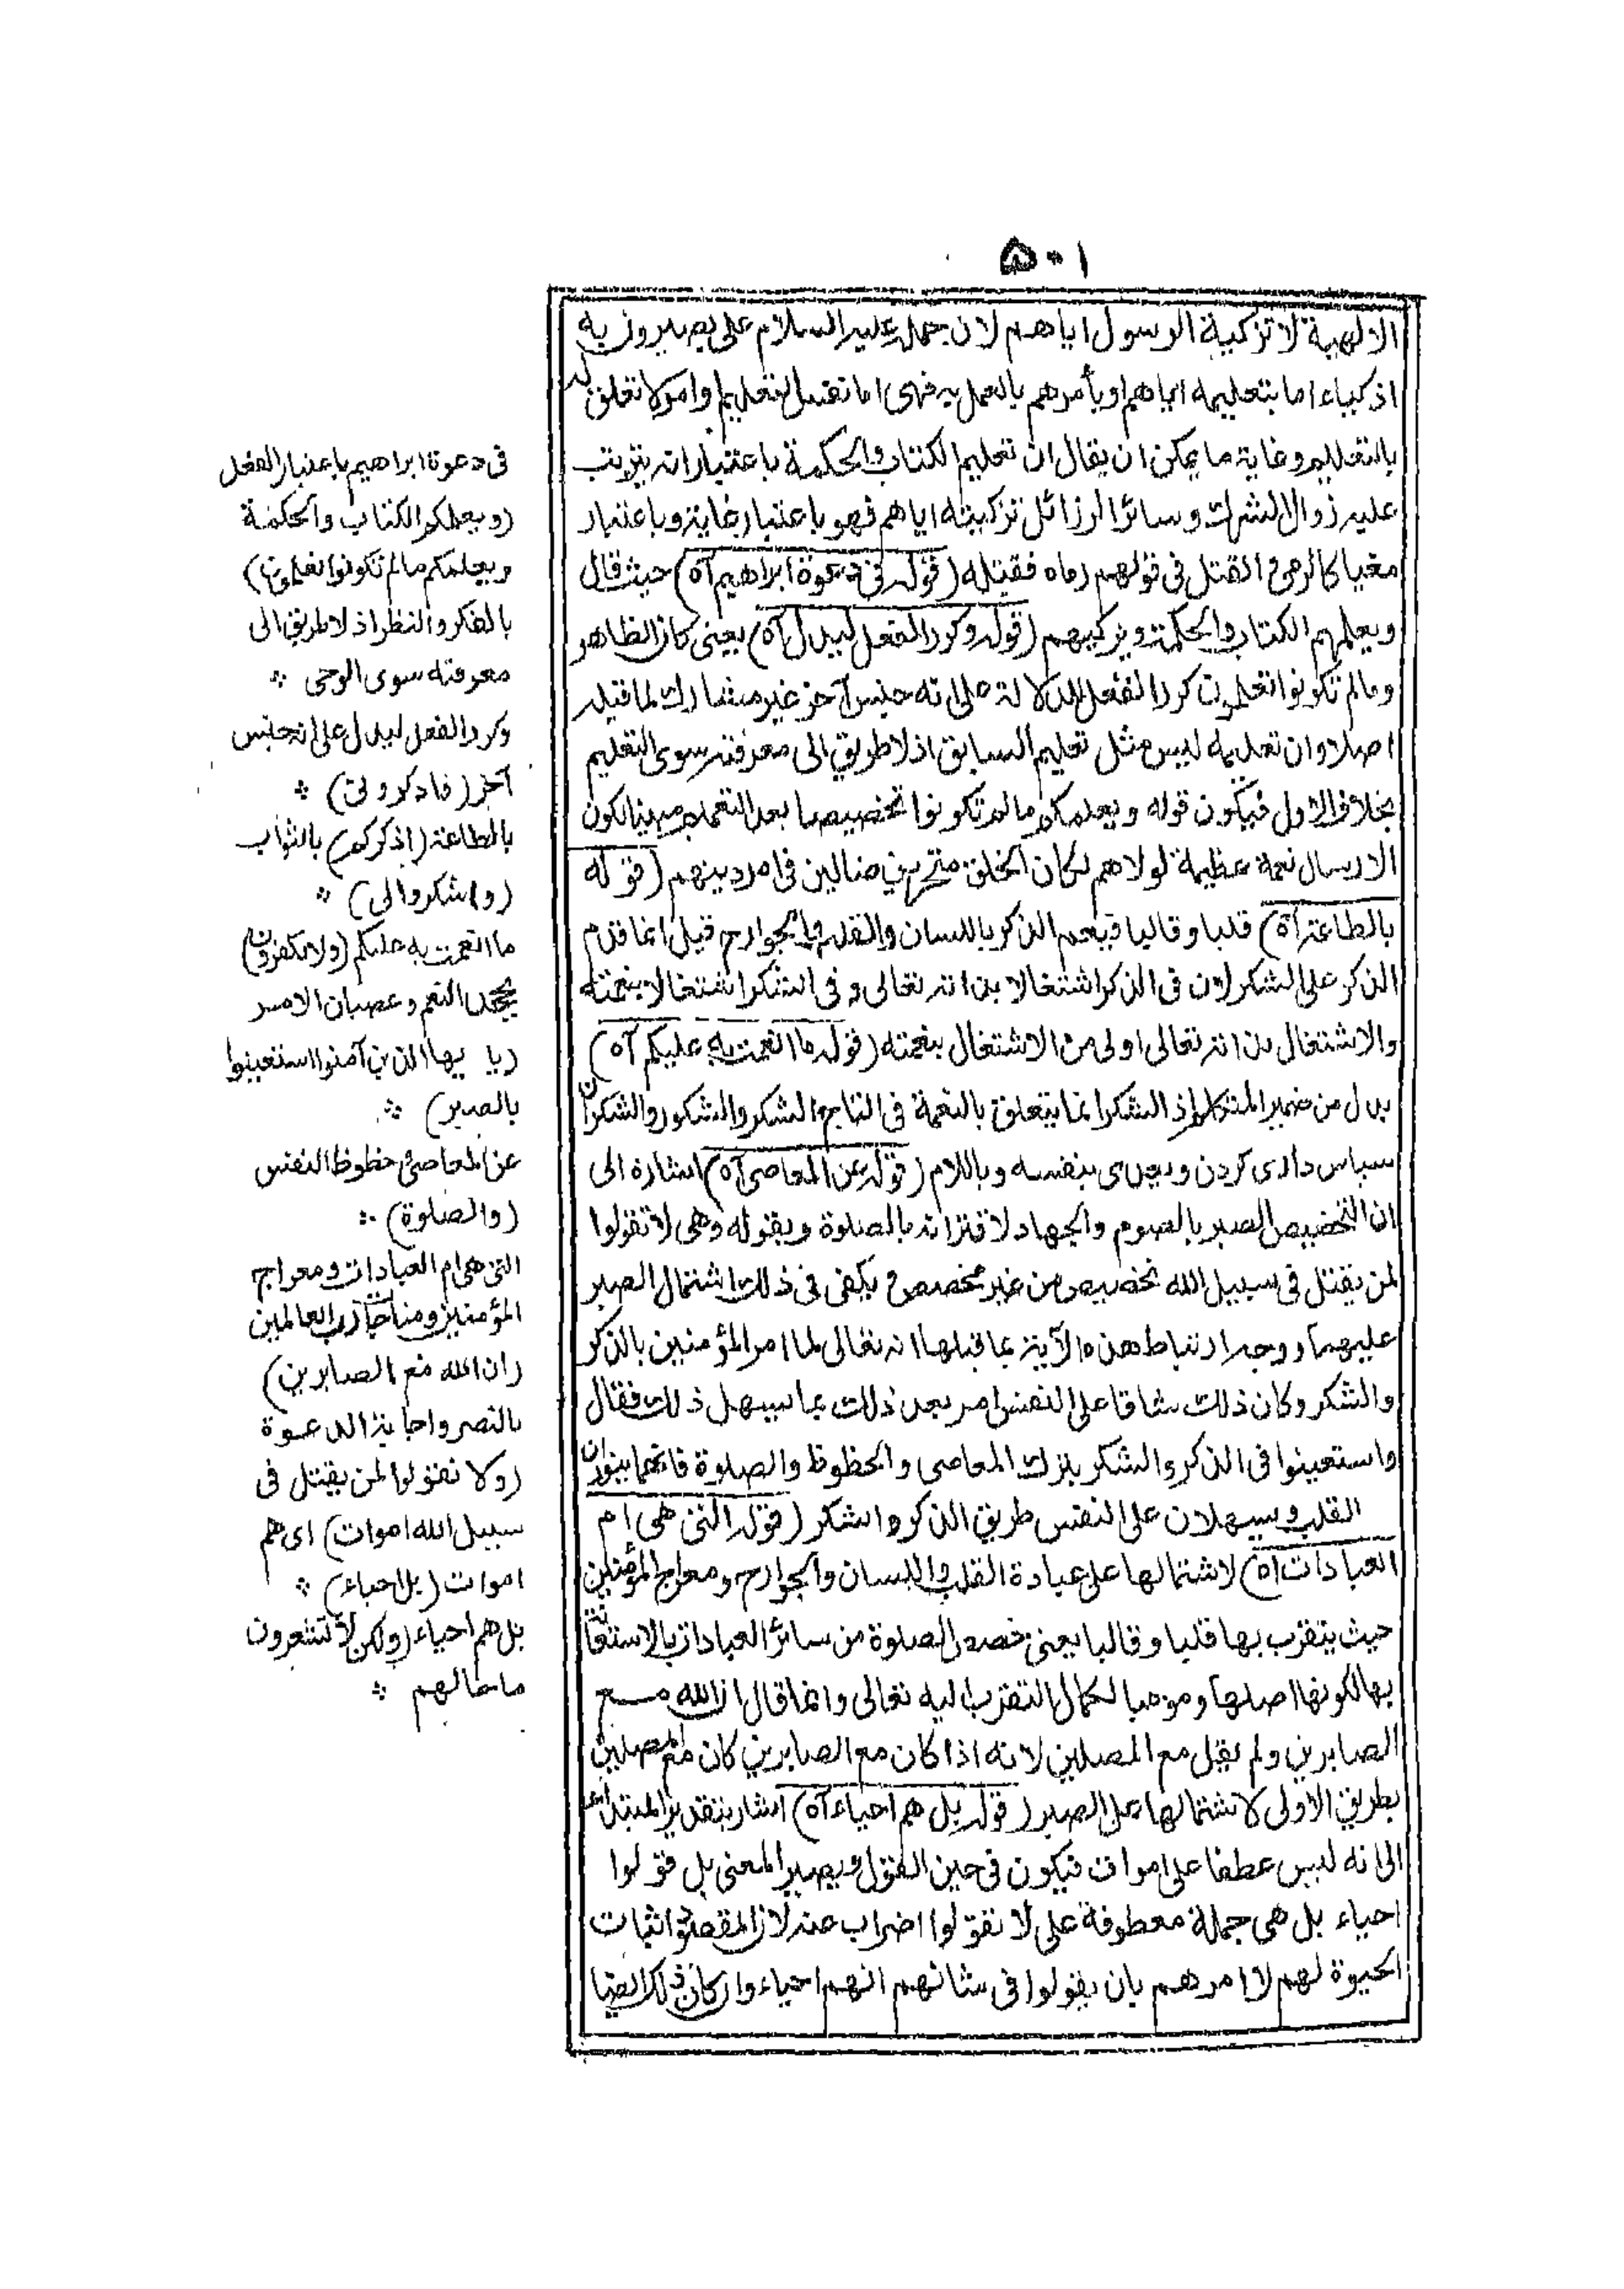 ۵۰۱
الالهية لا تزكية الرسول اياهم لان جمله عليه السلام على يصيرون به
اذكياء اما بتعليمه اياهم او يأمرهم بالعمل به فهى اما نفس التعليم او امر لا تعلق له
بالتعليم وغاية ما يمكن ان يقال ان تعليم الكتاب والحكمة باعتبار انه يترتب
عليه زوال الشرك وسائر الرزائل تزكيته اياهم فهو باعتبار غاية وباعتبار
مغيا كالرمى والقتل فى قولهم رماه فقتله (قوله فى دعوة ابراهيم آه) حيث قال
ويعلمهم الكتاب والحكمة ويزكيهم (قوله وكرر الفعل ليدل آه) يعنى كان الظاهر
وما لم تكونوا تعلمون كرر الفعل للدلالة على انه جنس آخر غير مشارك لما قبله
اصلا وان تعليمه ليس مثل تعليم السابق اذ لا طريق الى معرفته سوى التعليم
بخلاف الاول فيكون قوله ويعلمكم ما لم تكونوا تخصيصا بعد التعميم مبينا لكون
الارسال نعمة عظيمة لولاهم لكان الخلق متحيرين ضالين فى امر دينهم (قوله
بالطاعة آه) قلبا وقالبا فيعم الذكر باللسان والقلب والجوارح قيل انما قدم
الذكر على الشكر لان فى الذكر اشتغالا بذاته تعالى وفى الشكر اشتغالا بنعمته
والاشتغال بذاته تعالى اولى من الاشتغال بنعمته (قوله ما انعمت به عليكم آه)
بدل من ضمير المتكلم اذ الشكر انما يتعلق بالنعمة فى التاج الشكر والشكور والشكران
سپاس دارى كردن ويعدى بنفسه وباللام (قوله عن المعاصى آه) اشارة الى
ان التخصيص الصبر بالصوم والجهاد لاقترانه بالصلوة وبقوله وهى لا تقولوا
لمن يقتل فى سبيل الله تخصيص من غير مخصص ويكفى فى ذلك اشتمال الصبر
عليهما ووجه ارتباط هذه الآية بما قبلها انه تعالى لما امر المؤمنين بالذكر
والشكر وكان ذلك شاقا على النفس امر بعد ذلك بما يسهل ذلك فقال
واستعينوا فى الذكر والشكر بترك المعاصى والحظوظ والصلوة فانهما ينوران
القلب ويسهلان على النفس طريق الذكر والشكر (قوله التى هى ام
العبادات آه) لاشتمالها على عبادة القلب واللسان والجوارح ومعراج المؤمنين
حيث يتقرب بها قلبا وقالبا يعنى خصص الصلوة من سائر العبادات بالاستعانة
بها لكونها اصلها وموجبا لكمال التقرب اليه تعالى وانما قال ان الله مع
الصابرين ولم يقل مع المصلين لانه اذا كان مع الصابرين كان مع المصلين
بطريق الاولى لاشتمالها على الصبر (قوله بل هم احياء آه) اشار بتقدير المبتدأ
الى انه ليس عطفا على اموات فيكون فى حين القول ويصير المعنى بل قولوا
احياء بل هى جملة معطوفة على لا تقولوا اضراب عنه لان المقصود اثبات
الحيوة لهم لا امرهم بان يقولوا فى شانهم انهم احياء وان كان ذلك ايضا
فى دعوة ابراهيم باعتبار الفعل
(ويعلمكم الكتاب والحكمة
ويعلمكم ما لم تكونوا تعلمون)
بالفكر والنظر اذ لا طريق الى
معرفته سوى الوحى ؞
وكرر الفعل ليدل على انه جنس
آخر (فاذكرونى) ؞
بالطاعة (اذكركم) بالثواب
(واشكروا لى) ؞
ما انعمت به عليكم (ولا تكفرون)
بجحد النعم وعصيان الامر
(يا ايها الذين آمنوا استعينوا
بالصبر) ؞
عن المعاصى وحظوظ النفس
(والصلوة) ؞
التى هى ام العبادات ومعراج
المؤمنين ومناجات رب العالمين
(ان الله مع الصابرين)
بالنصر واجابة الدعوة
(ولا تقولوا لمن يقتل فى
سبيل الله اموات) اى هم
اموات (بل احياء) ؞
بل هم احياء (ولكن لا تشعرون
ما حالهم ؞